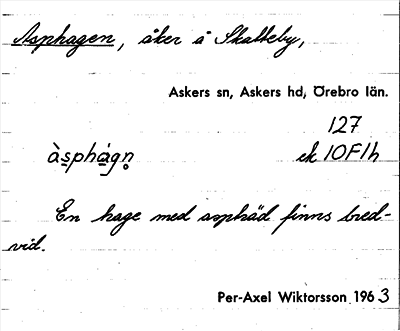 Asphagen, åker å Skalteby,
Askers sn, Askers hd, Örebro län.
127
àsphágn̥ ek 10F1h
En hage med asphäd finns bred-
vid.
Per-Axel Wiktorsson 1963